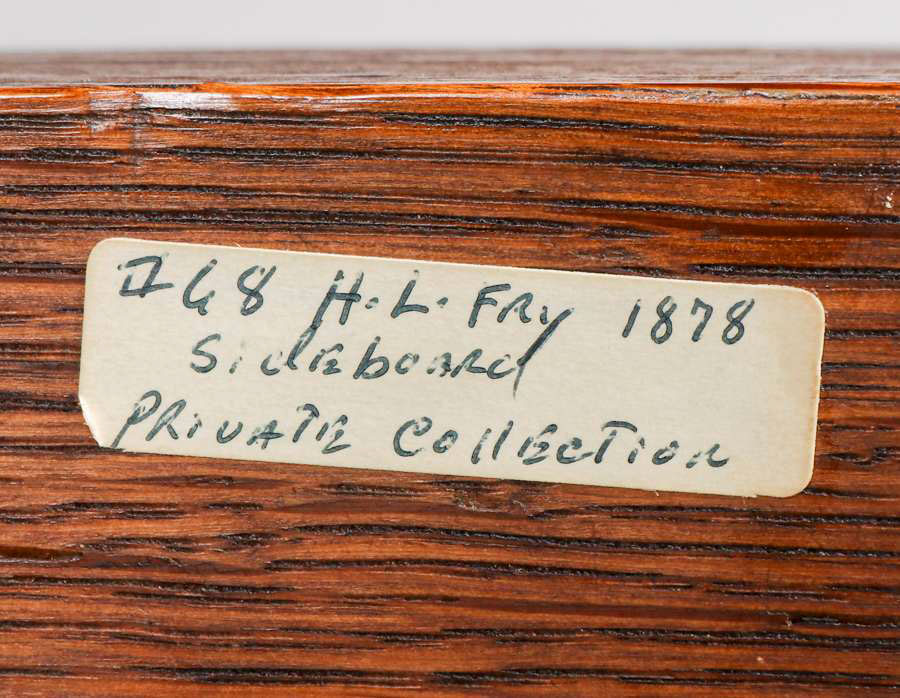 II 68 H. L. FRy 1878
Sideboard
PRIVATE Collection